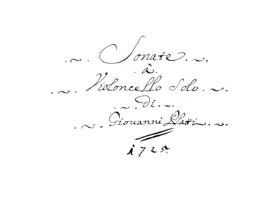 Sonate
à
Violoncello Solo
di
Giovanni Platti
1725